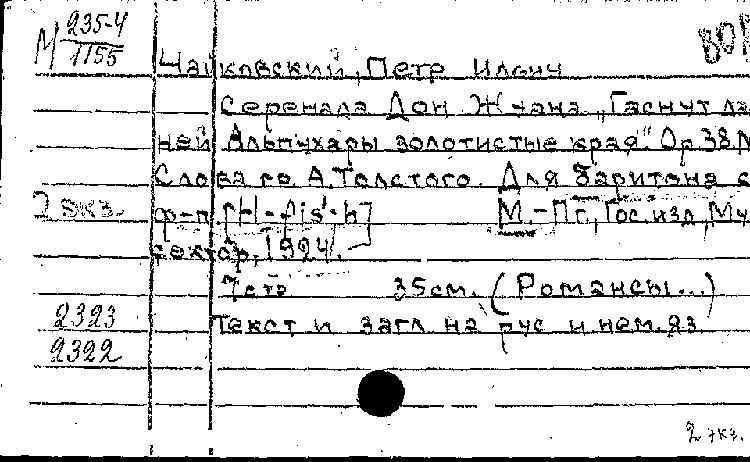 М 235-4
1155
Чайковский, Петр Ильич
Серенада Дон Жуана „Гаснут
ней Альпухары золотистые края". Op. 38
Слова гр. А. Толстого. Для баритона с
2 экз. ф-п. [H-fis'-h] М.-Пг., Гос. изд., Му
сектор, 1924.
7 стр 35 см. (Романсы...)
2323 Текст и загл. на рус и нем. яз
2322
2 экз.